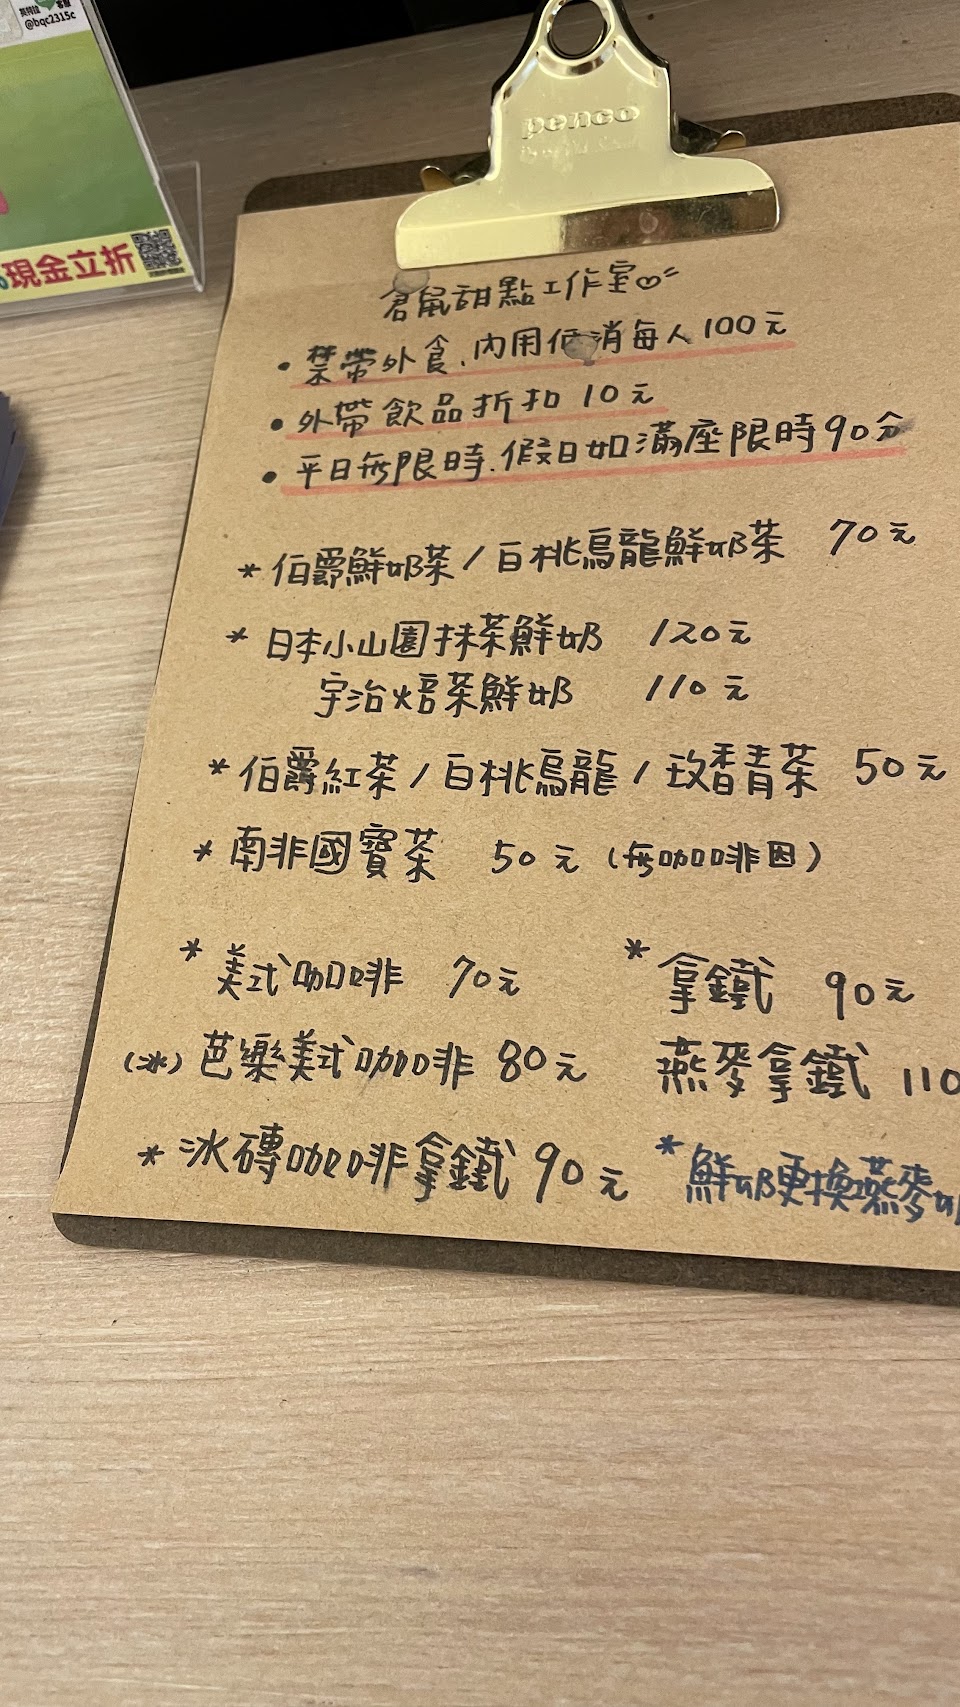 @bqc2315c
現金立折
penco
倉鼠甜點工作室
• 禁帶外食、內用低消每人100元
• 外帶飲品折扣10元
• 平日無限時、假日如滿座限時90分
* 伯爵鮮奶茶/白桃烏龍鮮奶茶 70元
* 日本小山園抹茶鮮奶 120元
宇治焙茶鮮奶 110元
* 伯爵紅茶/白桃烏龍/玫香青茶 50元
* 南非國寶茶 50元(無咖啡因)
* 美式咖啡 70元
(冰)芭樂美式咖啡 80元
* 冰磚咖啡拿鐵 90元
* 拿鐵 90元
燕麥拿鐵 110
* 鮮奶更換燕麥奶